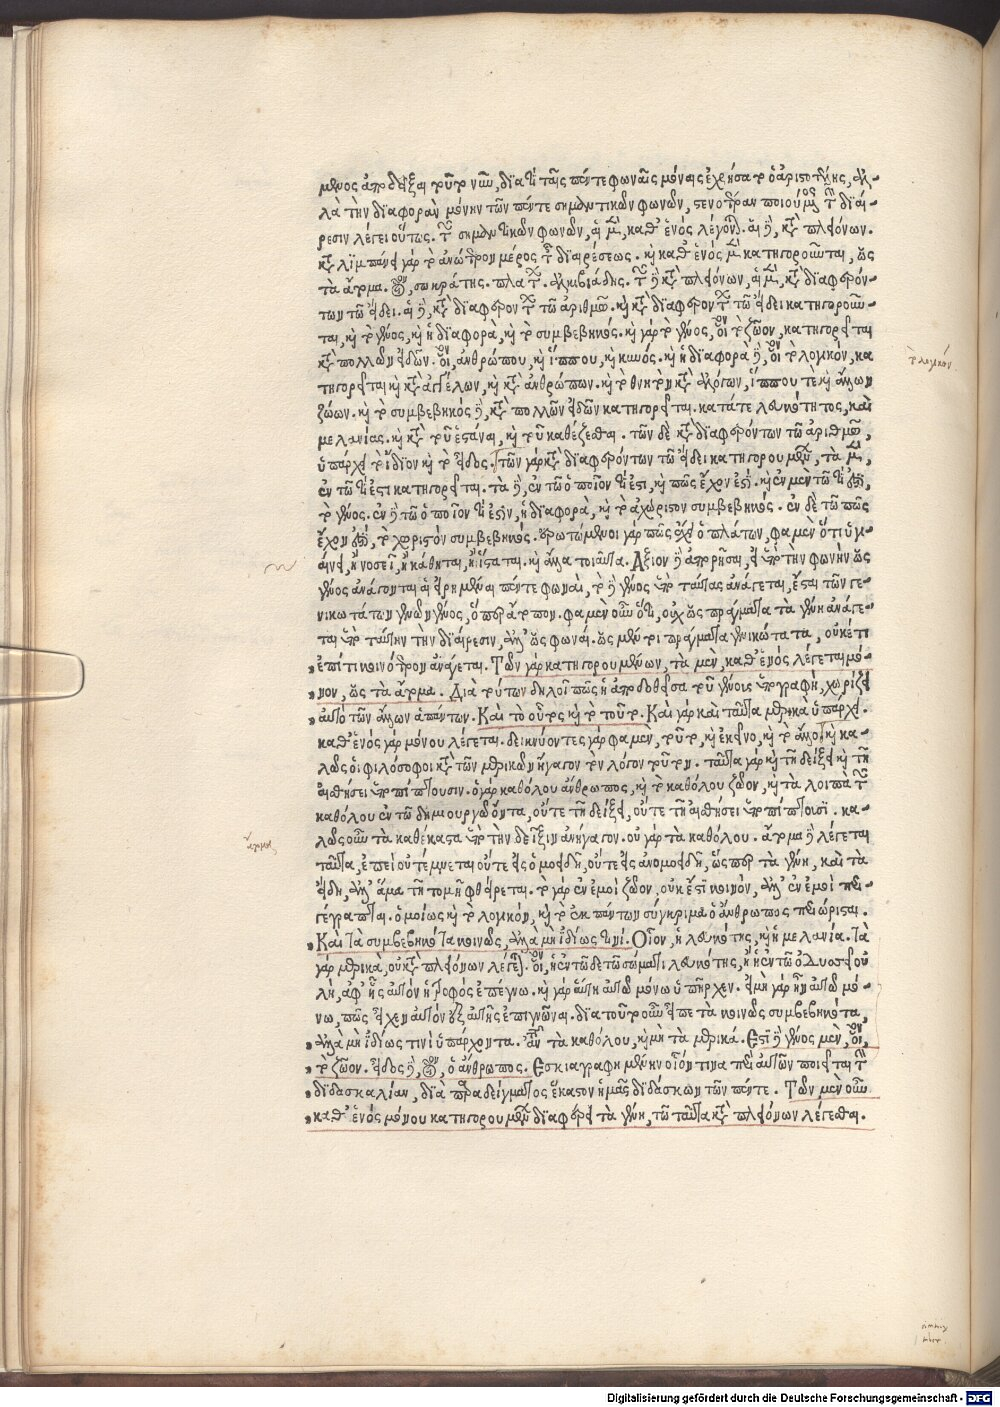 μενος ἀποδεῖξαι τοῦτο νῦν, διατί ταῖς πέντε φωναῖς μόναις ἐχρήσατο ὁ ἀριστοτέλης, ἀλ-
λὰ τὴν διαφορὰν μόνην τῶν πέντε σημαντικῶν φωνῶν, στενοτέραν ποιούμενος τὴν διαί-
ρεσιν λέγει οὕτως. τῶν σημαντικῶν φωνῶν, αἱ μὲν, καθ' ἑνὸς λέγονται. αἱ δὲ, κατὰ πλειόνων.
καταλιμπάνει γὰρ τὸ ἀνώτερον μέρος τῆς διαιρέσεως. καὶ καθ' ἑνὸς μὲν κατηγοροῦνται, ὡς
τὰ ἄτομα. οἷον, σωκράτης. πλάτων. ἀλκιβιάδης. τῶν δὲ κατὰ πλειόνων, αἱ μὲν, κατὰ διαφερόν-
των τῷ εἴδει. αἱ δὲ, κατὰ διαφερόντων τῷ ἀριθμῷ. καὶ κατὰ διαφερόντων τῷ εἴδει κατηγοροῦν-
ται, καὶ τὸ γένος, καὶ ἡ διαφορὰ, καὶ τὸ συμβεβηκός. καὶ γὰρ τὸ γένος, οἷον τὸ ζῶον, κατηγορεῖται
κατὰ πολλῶν εἰδῶν. οἷον, ἀνθρώπου, καὶ ἵππου, καὶ κυνός. καὶ ἡ διαφορὰ δὲ, οἷον τὸ λογικὸν, κα
τηγορεῖται καὶ κατὰ ἀγγέλων, καὶ κατὰ ἀνθρώπων. καὶ τὸ θνητὸν κατὰ ἀλόγων, ἵππου τὲ καὶ ἄλλων
ζώων. καὶ τὸ συμβεβηκὸς δὲ, κατὰ πολλῶν εἰδῶν κατηγορεῖται. κατά τε λευκότητος, καὶ
μελανίας. καὶ κατὰ τοῦ ἑστάναι, καὶ τοῦ καθέζεσθαι. τῶν δὲ κατὰ διαφερόντων τῷ ἀριθμῷ,
ὑπάρχει τὸ ἴδιον καὶ τὸ εἶδος. τῶν γὰρ κατὰ διαφερόντων τῷ εἴδει κατηγορουμένων, τὰ μὲν,
ἐν τῷ τί ἐστι κατηγορεῖται. τὰ δὲ, ἐν τῷ ὁποῖον τί ἐστι, καὶ πῶς ἔχον ἐστί. καὶ ἐν μὲν τῷ τί ἐστι,
τὸ γένος. ἐν δὲ τῷ ὁποῖον τί ἐστιν, ἡ διαφορὰ, καὶ τὸ ἀχώριστον συμβεβηκός. ἐν δὲ τῷ πῶς
ἔχον ἐστὶ, τὸ χωριστὸν συμβεβηκός. ἐρωτώμενοι γὰρ πῶς ἔχει ὁ πλάτων, φαμὲν ὅτι ὑγι-
αίνει, ἢ νοσεῖ, ἢ κάθηται, ἢ ἵσταται. καὶ ἄλλα τοιαῦτα. Ἄξιον δὲ ἀπορῆσαι, εἰ ὑπὸ τὴν φωνὴν ὡς
γένος ἀνάγονται αἱ εἰρημέναι πέντε φωναὶ, τὸ δὲ γένος ὑπὸ ταύτας ἀνάγεται, ἔσται τῶν γε-
νικωτάτων γενῶν γένος, ὅπερ ἄτοπον. φαμὲν οὖν ὅτι, οὐχ ὡς πράγματα τὰ γένη ἀνάγε-
ται ὑπὸ ταύτην τὴν διαίρεσιν, ἀλλ' ὡς φωναί. ὡς μέντοι πράγματα γενικώτατα, οὐκέτι
ἐπί τι κοινότερον ἀνάγεται. Τῶν γὰρ κατηγορουμένων, τὰ μὲν, καθ' ἑνὸς λέγεται μό-
νον, ὡς τὰ ἄτομα. Διὰ τούτων δηλοῖ πῶς ἡ ἀποδοθεῖσα τοῦ γένους ὑπογραφὴ, χωρίζει
αὐτὸ τῶν ἄλλων ἁπάντων. Καὶ τὸ οὗτος καὶ τὸ τοῦτο. Καὶ γὰρ καὶ ταῦτα μερικὰ ὑπάρχει.
καθ' ἑνὸς γὰρ μόνου λέγεται. δεικνύοντες γὰρ φαμὲν, τοῦτο, καὶ ἐκεῖνο, καὶ τὸ ἄλλο. καὶ κα-
λῶς οἱ φιλόσοφοι κατὰ τῶν μερικῶν ἤγαγον τὸν λόγον τοῦτον. ταῦτα γὰρ καὶ τῇ δείξει καὶ τῇ
αἰσθήσει ὑποπίπτουσιν. ὁ γὰρ καθόλου ἄνθρωπος, καὶ τὸ καθόλου ζῶον, καὶ τὰ λοιπὰ τῶν
καθόλου ἐν τῷ δημιουργῷ ὄντα, οὔτε τῇ δείξει, οὔτε τῇ αἰσθήσει ὑποπίπτουσι. κα-
λῶς οὖν τὰ καθέκαστα ὑπὸ τὴν δεῖξιν ἀνήγαγον. οὐ γὰρ τὰ καθόλου. ἄτομα δὲ λέγεται
ταῦτα, ἐπεὶ οὐ τέμνεται οὔτε εἰς ὁμοειδῆ, οὔτε εἰς ἀνομοειδῆ, ὥσπερ τὰ γένη, καὶ τὰ
εἴδη, ἀλλ' ἅμα τῇ τομῇ φθείρεται. τὸ γὰρ ἐν ἐμοὶ ζῶον, οὐκ ἔστι κοινὸν, ἀλλ' ἐν ἐμοὶ περι-
γέγραπται. ὁμοίως καὶ τὸ λογικὸν, καὶ τὸ ἐκ πάντων σύγκριμα ὁ ἄνθρωπος περιώρισται.
Καὶ τὰ συμβεβηκότα κοινῶς, ἀλλὰ μὴ ἰδίως τινί. Οἷον, ἡ λευκότης, καὶ ἡ μελανία. τὰ
γὰρ μερικὰ, οὐ κατὰ πλειόνων λέγεται. οἷον, ἡ ἐν τῷδε τῷ σώματι λευκότης, ἢ ἡ ἐν τῷ ὀδυσσεῖ οὐ
λὴ, ἀφ' ἧς αὐτὸν ἡ τροφὸς ἐπέγνω. καὶ γὰρ αὕτη αὐτῷ μόνω ὑπῆρχεν. εἰ μὴ γὰρ ἦν αὐτῷ μό-
νω, πῶς εἶχεν αὐτὸν ἐξ αὐτῆς ἐπιγνῶναι. διὰ τοῦτο οὖν εἶπε τὰ κοινῶς συμβεβηκότα,
ἀλλὰ μὴ ἰδίως τινὶ ὑπάρχοντα. ἀντὶ τοῦ τὰ καθόλου, καὶ μὴ τὰ μερικά. Ἔστι δὲ γένος μὲν, οἷον,
τὸ ζῶον. εἶδος δὲ, οἷον, ὁ ἄνθρωπος. Ἐσκιαγραφημένην οἷόν τινα περὶ αὐτῶν ποιεῖται τὴν
διδασκαλίαν, διὰ παραδείγματος ἕκαστον ἡμᾶς διδάσκων τῶν πέντε. Τῶν μὲν οὖν
καθ' ἑνὸς μόνου κατηγορουμένων διαφέρει τὰ γένη, τῷ ταῦτα κατὰ πλειόνων λέγεσθαι.
τὸ λογικόν.
ἄτομα
Digitalisierung gefördert durch die Deutsche Forschungsgemeinschaft - DFG